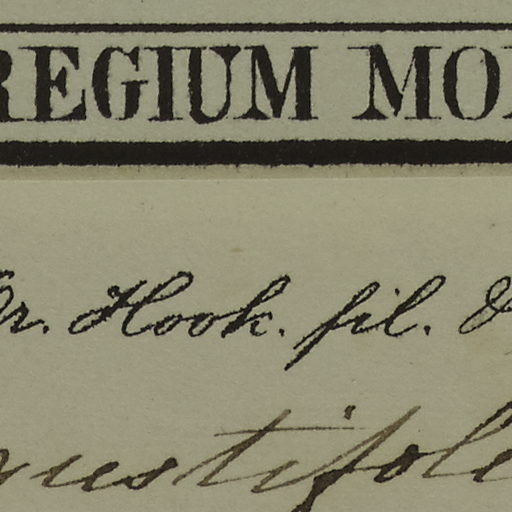 REGIUM MO
Dr. Hook. fil. &
gustifoli